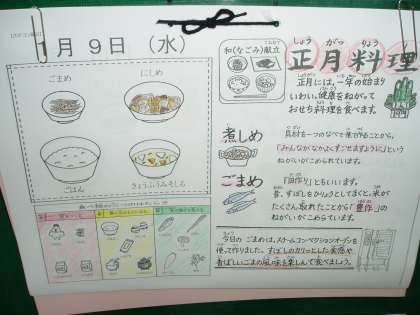 1月9日(水)
ごまめ
にしめ
ごはん
きょうふうみそしる
和(なごみ)献立
しょう がつ りょう り
正月料理
正月には、一年の始まり
いわい、健康をねがって
おせち料理を食べます。
煮しめ
具材を一つのなべで煮て作ることから、
「みんながなかよくすごせますように」という
ねがいがこめられています。
ごまめ
「田作り」ともいいます。
昔、すぼしをひりょうとしておくと、米が
たくさん取れたことから「豊作」の
ねがいがこめられています。
今日の ごまめは、スチームコンベクションオーブン
を使って作りました。すぼしのカリッとした食感や
香ばしいごまの風味を楽しんで食べましょう。